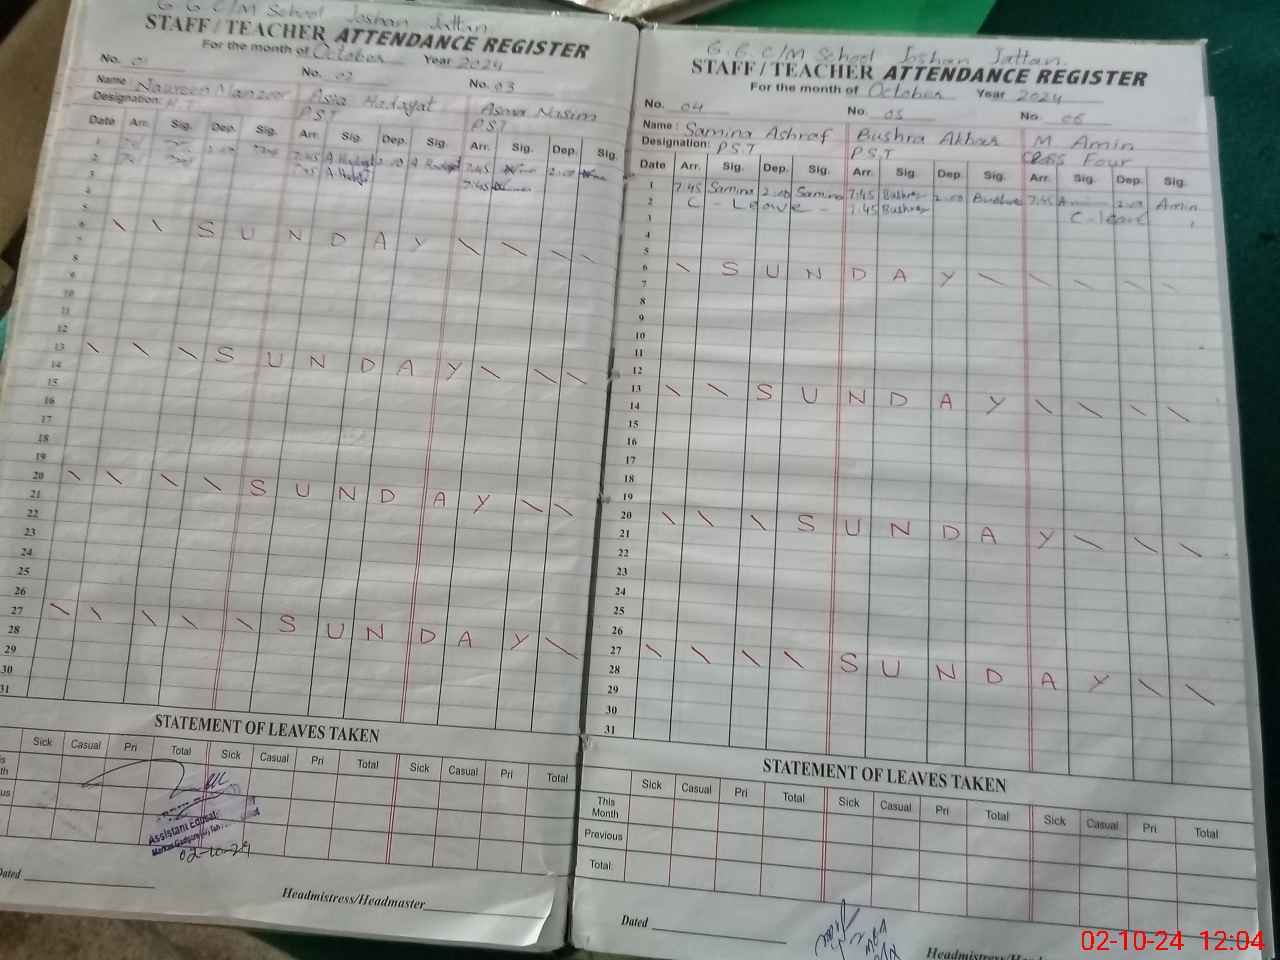 G.G.C/M School Joshan Jattan
STAFF / TEACHER ATTENDANCE REGISTER
For the month of October Year 2024
No. 01 No. 02 No. 03
Name: Naureen Manzoor Asia Hadayat Asma Nasim
Designation: H.T P.S.T P.S.T
Date Arr. Sig. Dep. Sig. Arr. Sig. Dep. Sig. Arr. Sig. Dep. Sig.
1 7.45 A.Hadayat 2.00 A Hadayat 7.45 2.00
2 7.45 A.Hadayat 7.45
3
4
5
6 S U N D A Y
7
8
9
10
11
12
13 S U N D A Y
14
15
16
17
18
19
20 S U N D A Y
21
22
23
24
25
26
27 S U N D A Y
28
29
30
31
STATEMENT OF LEAVES TAKEN
Sick Casual Pri Total Sick Casual Pri Total Sick Casual Pri Total
Assistant
02-10-24
Dated
Headmistress/Headmaster
G.G.C/M School Joshan Jattan.
STAFF / TEACHER ATTENDANCE REGISTER
For the month of October Year 2024
No. 04 No. 05 No. 06
Name: Samina Ashraf Bushra Akhtar M Amin
Designation: P.S.T P.S.T Class Four
Date Arr. Sig. Dep. Sig. Arr. Sig. Dep. Sig. Arr. Sig. Dep. Sig.
1 7.45 Samina 2.00 Samina 7.45 Bushra 2.00 Bushra 7.45 Amin 2.00 Amin
2 C - Leave - 7.45 Bushra C-leave
3
4
5
6 S U N D A Y
7
8
9
10
11
12
13 S U N D A Y
14
15
16
17
18
19
20 S U N D A Y
21
22
23
24
25
26
27 S U N D A Y
28
29
30
31
STATEMENT OF LEAVES TAKEN
Sick Casual Pri Total Sick Casual Pri Total Sick Casual Pri Total
This Month
Previous
Total:
Dated
02-10-24 12:04